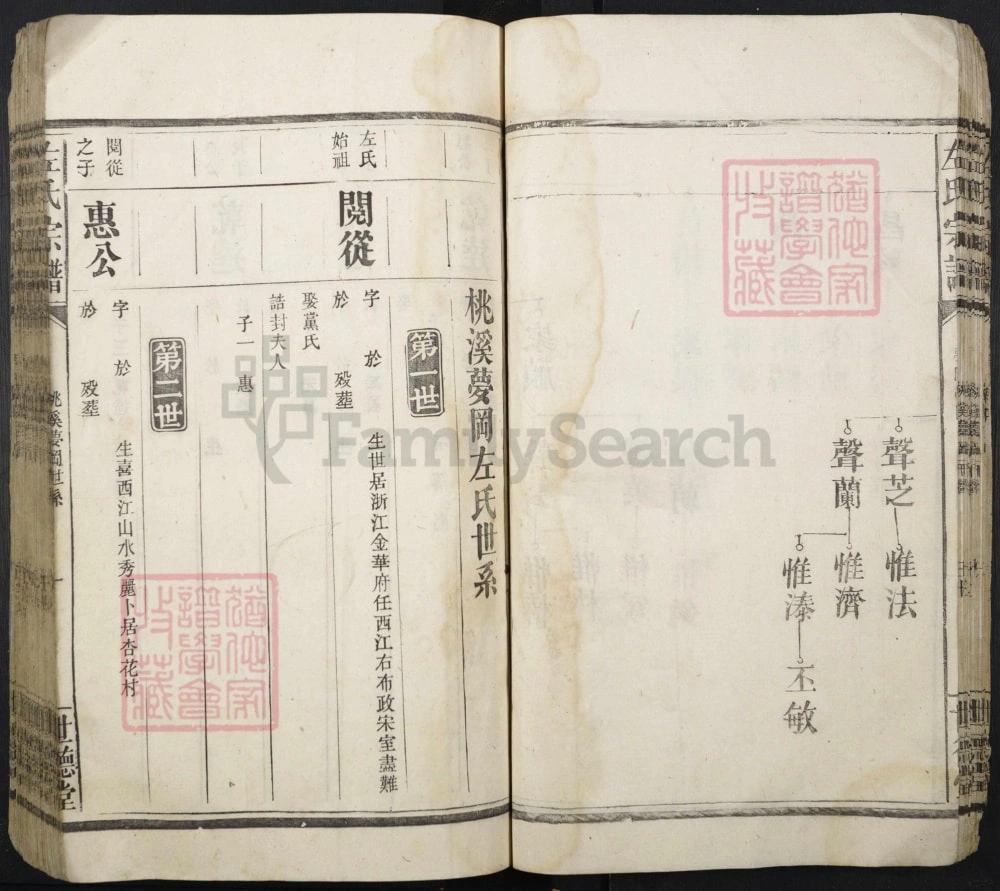 左氏宗譜
聲芝
惟法
聲蘭
惟濟
惟溱
丕敏
桃溪夢岡左氏世系
第一世
左氏
始祖
閱從
字 於 生世居浙江金華府任西江右布政宋室盡難
於 歿塟
娶黨氏
誥封夫人
子一 惠
第二世
閱從
之子
惠公
字 於 生喜西江山水秀麗卜居杏花村
於 歿塟
左氏宗譜
桃溪夢岡世系
一
世德堂
FamilySearch